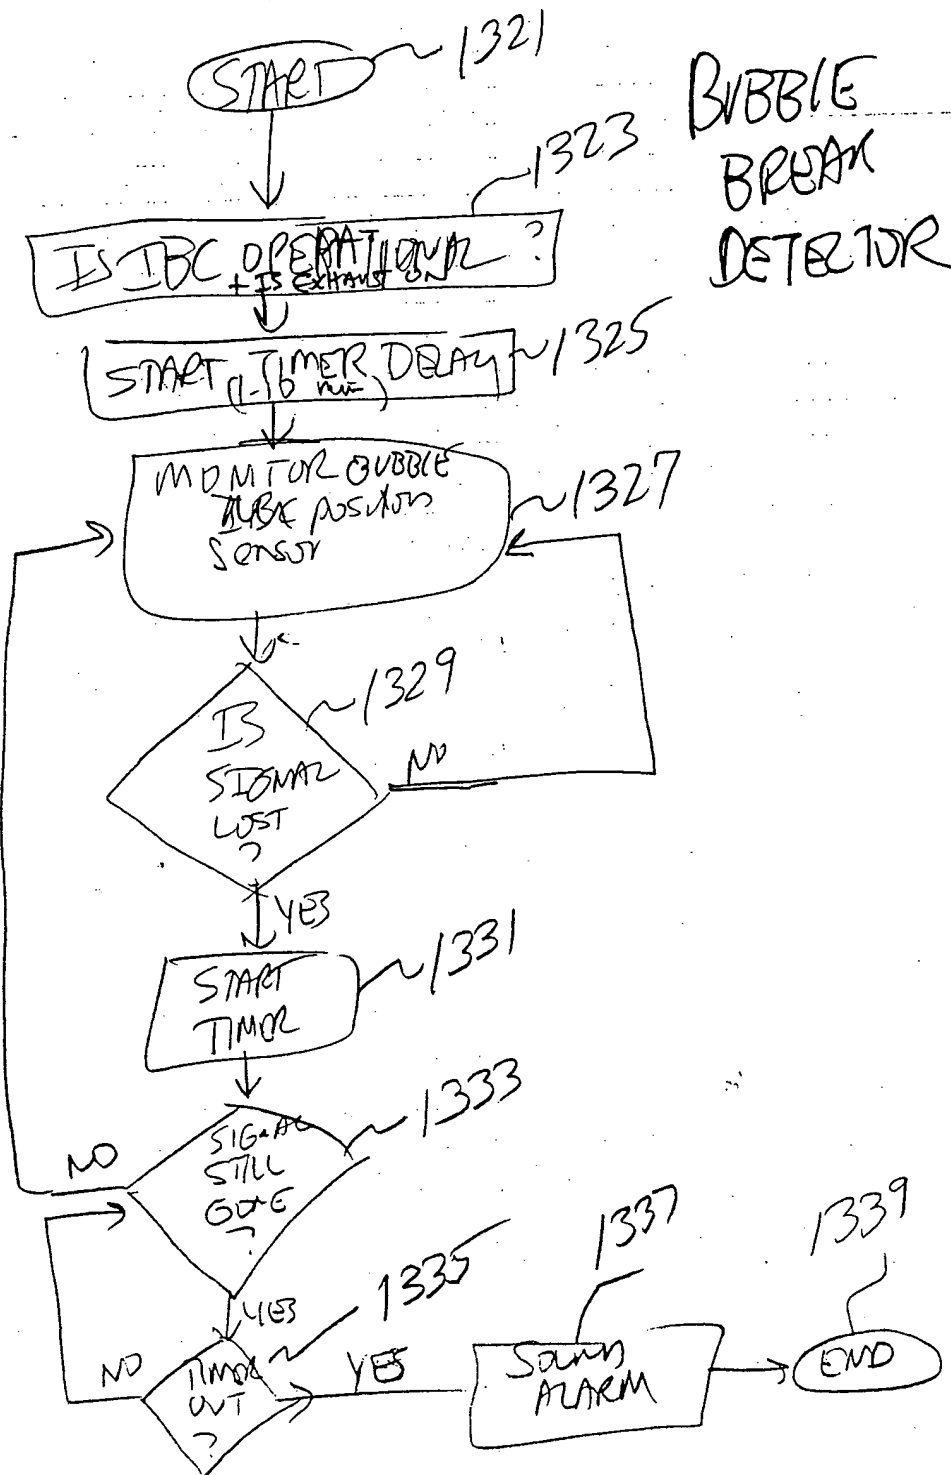 START
1321
BUBBLE
BREAK
DETECTOR
1323
IS IBC OPERATIONAL ?
+ IS EXHAUST ON
START TIMER DELAY
1325
MONITOR BUBBLE
position
Sensor
1327
1329
IS
SIGNAL
LOST
?
NO
YES
1331
START
TIMER
1333
SIGNAL
STILL
GONE
?
NO
YES
1335
TIMER
OUT
?
NO
YES
1337
SOUND
ALARM
1339
END